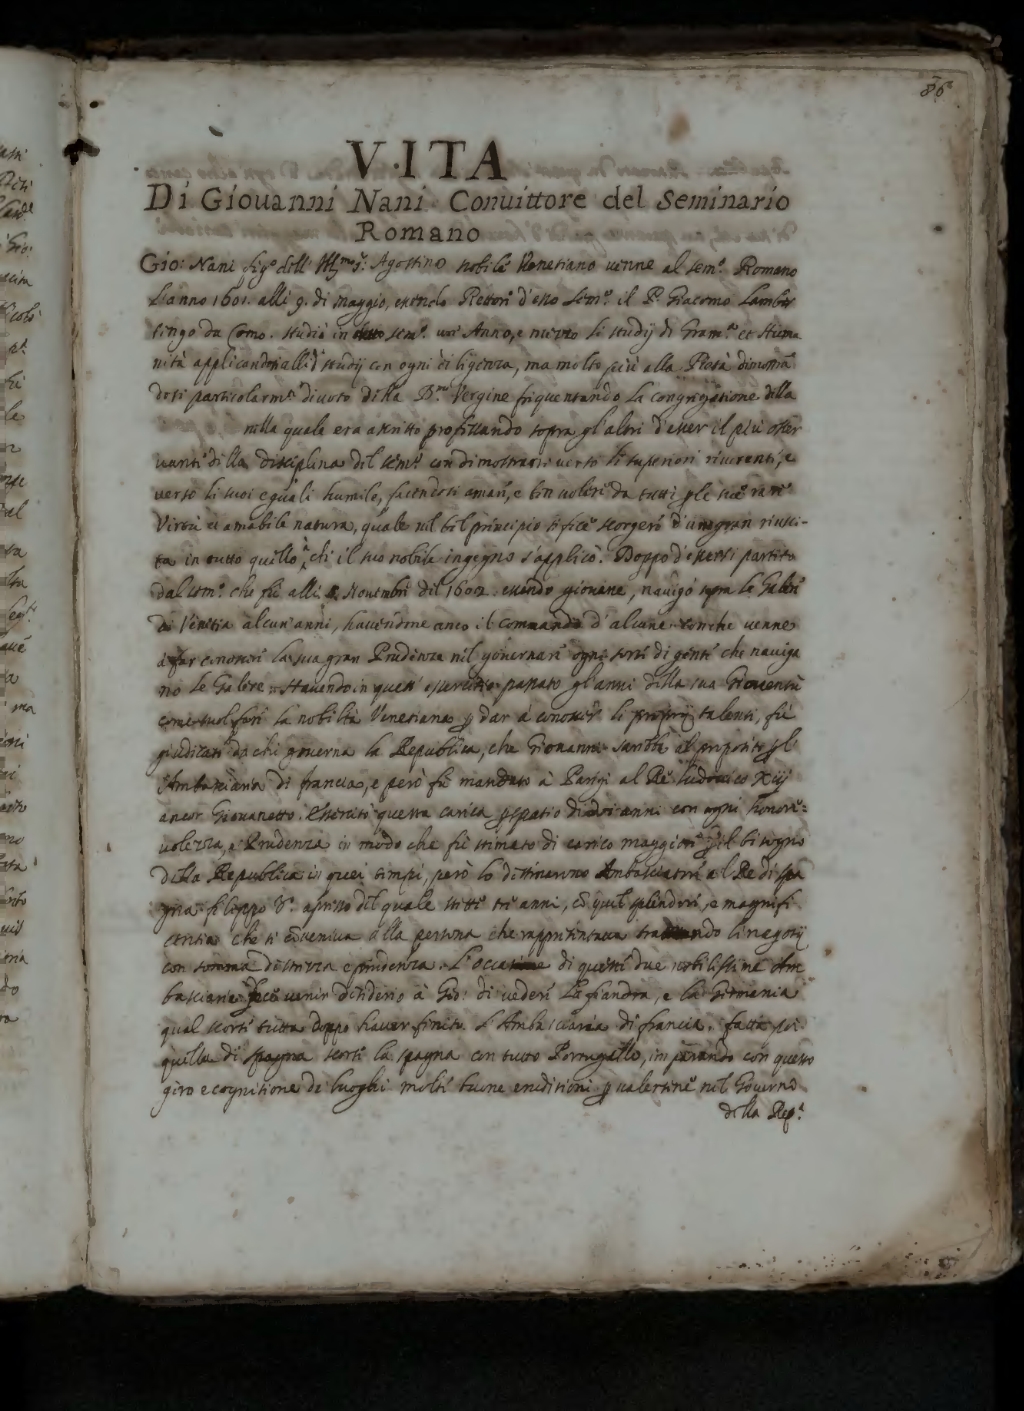 86
VITA
Di Giouanni Nani Conuittore del Seminario
Romano
Gio: Nani fig.º dell' Ill.mo S.r Agostino nobile Venetiano uenne al sem.º Romano
L'anno 1601. alli 9. di maggio, essendo Rettore d'esso sem.º il P. Giacomo Lamber
tengo da Como. studiò in sem.º un' Anno, e mezzo li studij di Gram.ca et Huma
nità applicandosi alli studij con ogni diligenza, ma molto più alla Pietà dimostran
dosi particolarm.e diuoto della B.ma Vergine frequentando la congregatione della
nella quale era ascritto professando sopra gl'altri d'esser il più osser
uante della disciplina del sem.º con dimostrarsi uerso li superiori riuerente, e
uerso li suoi eguali humile, facendosi amare, e ben uolere da tutti p le sue rare
Virtù et amabile natura, quale nel bel principio si fece scorgere d'una gran riusci-
ta in tutto quello à che il suo nobile ingegno s'applicò. Doppo d'essersi partito
dal sem.º che fù alli 8. Nouembre del 1602. essendo giouane, nauigò sopra le Galere
di Venetia alcun'anni, hauendone anco il commando d'alcune con che uenne
à far conoscere la sua gran Prudenza nel gouernare ogni sorte di gente che nauiga
no le Galere. Hauendo in questo essercitio passato gl'anni della sua Giouentù
come suol fare la nobiltà Venetiana p dar à conoscere li proprij talenti, fù
giudicato da chi gouerna la Republica, che Giouanni sarebbe al proposito p l'
Ambasciaria di francia, e però fù mandato à Parigi al Rè Ludouico Xiij
ancor Giouanetto. Essercitò questa carica p spatio di doi anni con ogni honore-
uolezza, e Prudenza in modo che fù stimato di carico maggiore p il bisogno
della Republica in quei tempi, però lo destinarono Ambasciatore al Rè di spa
gna filippo del quale stette tre anni, cõ quel splendore, e magnifi
centia che si cõueniua alla persona che rappresentaua trattando li negotij
con somma destrezza e prudenza. L'occasione di queste due nobilissime Am
basciarie fece uenir desiderio à Gio: di uedere La fiandra, e la Germania
qual scorse tutta doppo hauer finito L'Ambasciaria di francia. fatta poi
quella di spagna scorse la spagna con tutto Portugallo, imparando con questo
giro e cognitione de luoghi molte buone eruditioni p ualersene nel Gouerno
della Rep.ca